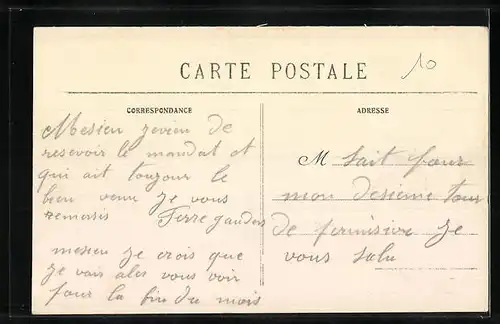 10
CARTE POSTALE
CORRESPONDANCE
Mesieu jevien de
resevoir le mandat et
qui ait toujour le
bien venu je vous
remersis
mesieu je crois que
je vais ales vous voir
pour la fin du mois
ADRESSE
M sait pour
mon desieme tour
de permisive je
vous salu